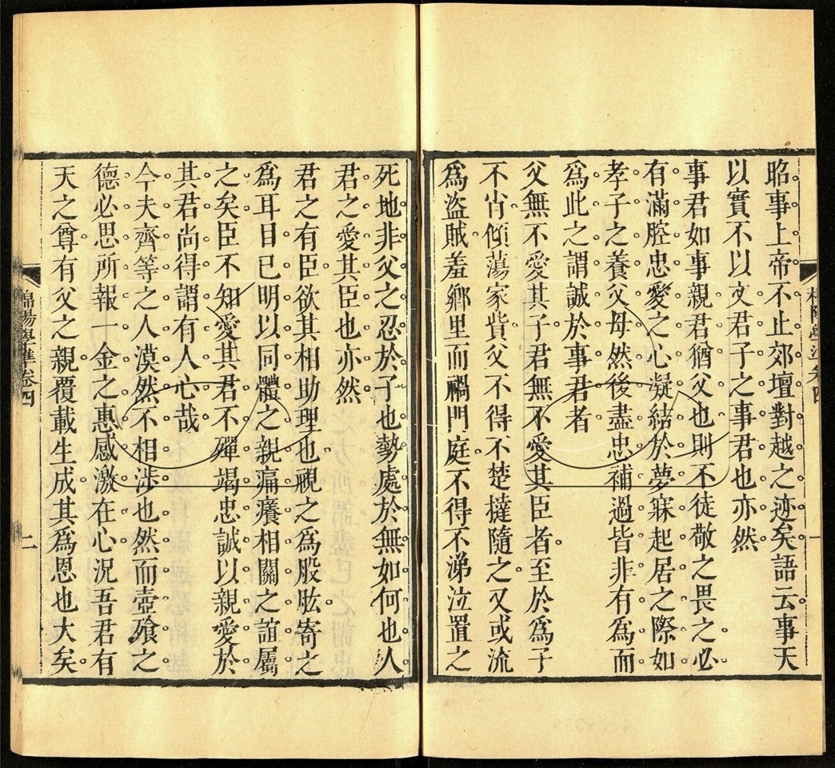 昭事上帝不止郊壇對越之迹矣語云事天
以實不以文君子之事君也亦然
事君如事親君猶父也則不徒敬之畏之必
有滿腔忠愛之心凝結於夢寐起居之際如
孝子之養父母然後盡忠補過皆非有爲而
爲此之謂誠於事君者
父無不愛其子君無不愛其臣者至於爲子
不肖傾蕩家貲父不得不楚撻隨之又或流
爲盜賊羞鄉里而禍門庭不得不涕泣置之
死地非父之忍於子也勢處於無如何也人
君之愛其臣也亦然
君之有臣欲其相助理也視之爲股肱寄之
爲耳目已明以同體之親痛癢相關之誼屬
之矣臣不知愛其君不殫竭忠誠以親愛於
其君尚得謂有人心哉
今夫齊等之人漠然不相涉也然而壺飱之
德必思所報一金之惠感激在心況吾君有
天之尊有父之親覆載生成其爲恩也大矣
棉陽學準卷四
二